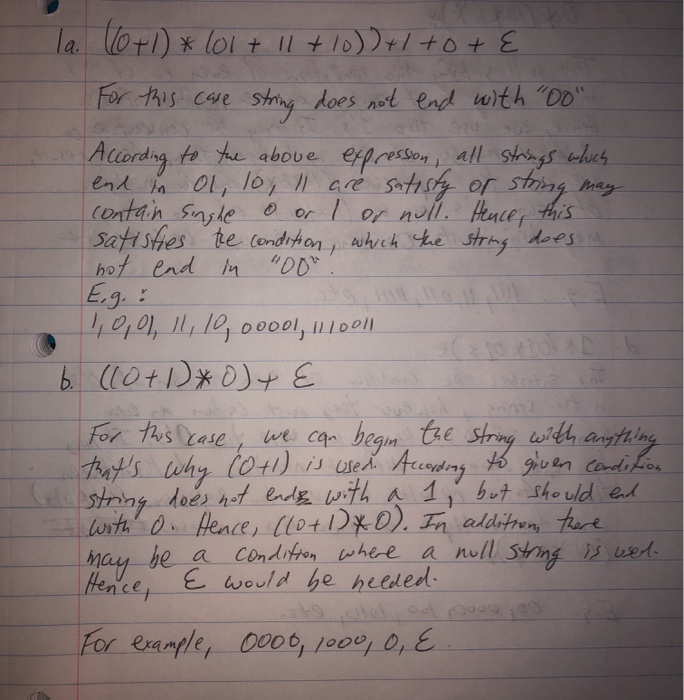 1a. ((0+1) * (01 + 11 + 10)) + 1 + 0 + ε
For this case string does not end with "00"
According to the above expression, all strings which
end in 01, 10, 11 are satisfy or string may
contain single 0 or 1 or null. Hence, this
satisfies the condition, which the string does
not end in "00".
E.g. :
1, 0, 01, 11, 10, 00001, 1110011
b. ((0+1)*0) + ε
For this case, we can begin the string with anything
that's why (0+1) is used. According to given condition
string does not ends with a 1, but should end
with 0. Hence, ((0+1)*0). In addition, there
may be a condition where a null string is used.
Hence, ε would be needed.
For example, 0000, 1000, 0, ε.